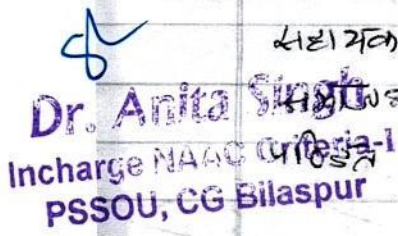 सहायक
Dr. Anita Singh
Incharge NAAC Criteria-I
PSSOU, CG Bilaspur